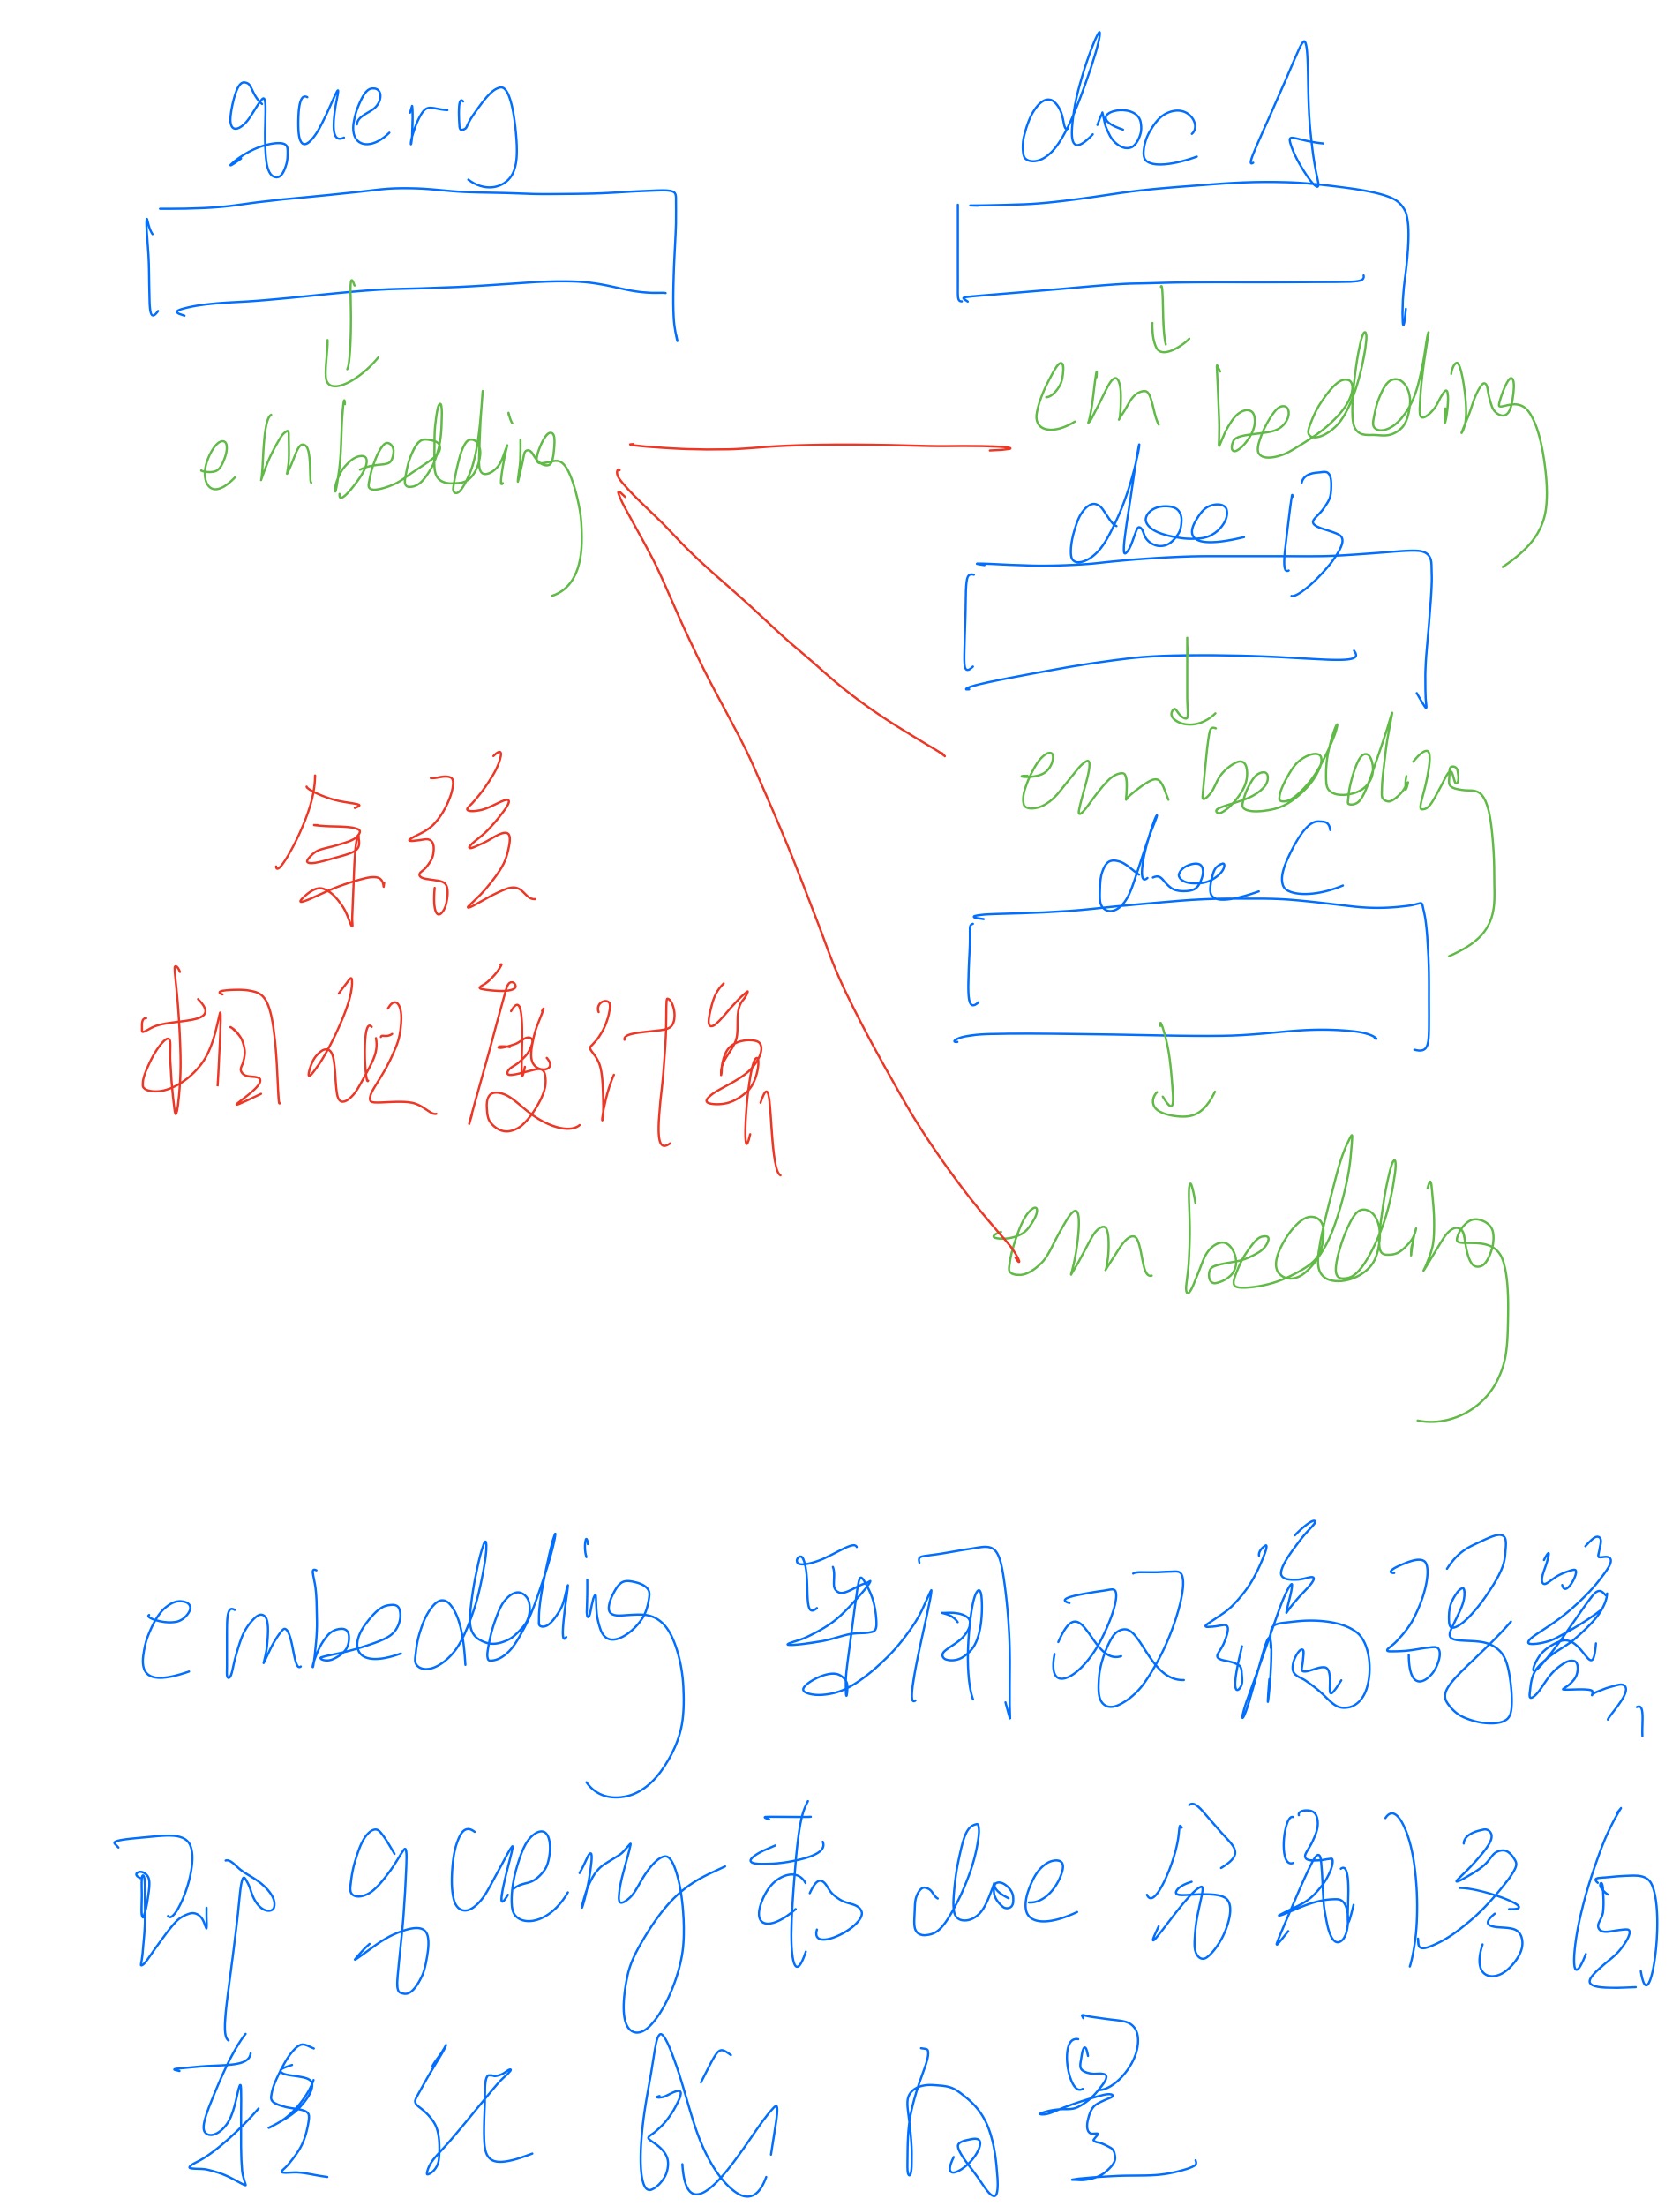 query
doc A
embedding
embedding
doc B
embedding
doc C
embedding
余弦
相似度计算
embedding 采用双编码器,
即 query 和 doc 分别各自
转化成 向量